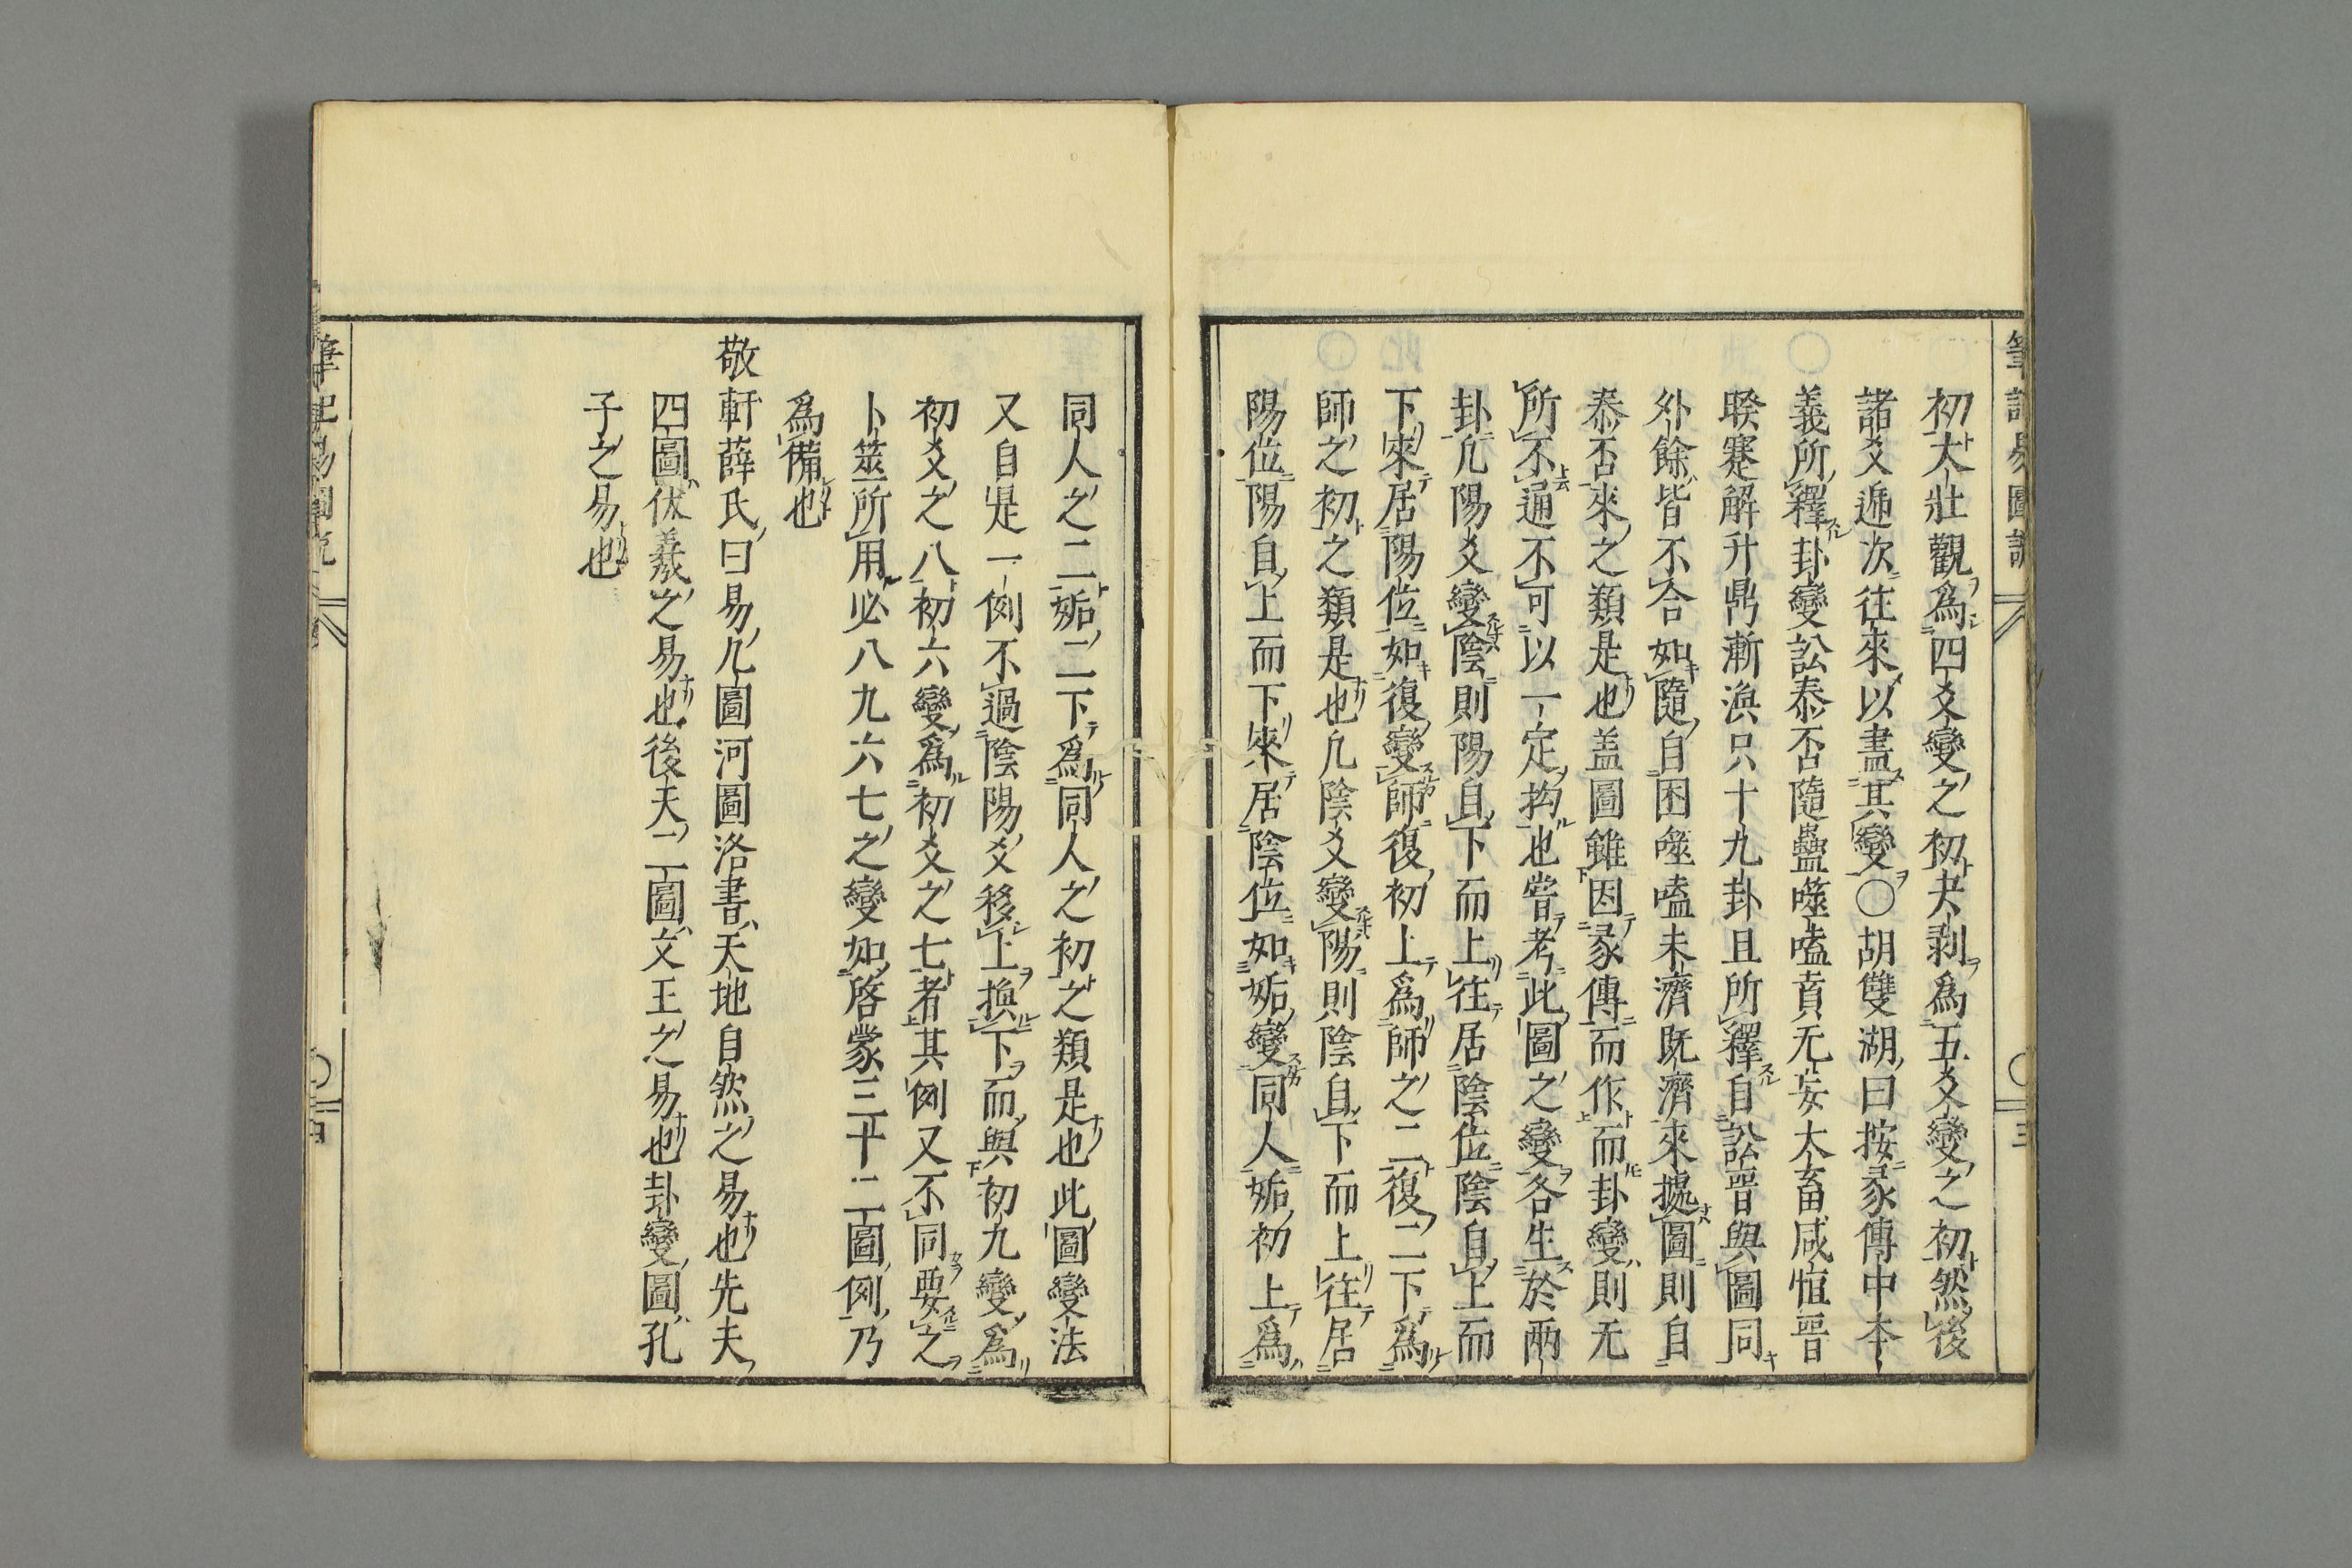 筆記易圖説
三
初大壯觀爲四爻變之初夬剥爲五爻變之初然後
諸爻遞次往來以盡其變〇胡雙湖曰按彖傳中本
義所釋卦變訟泰否隨蠱噬嗑賁无妄大畜咸恒晉
睽蹇解升鼎漸渙只十九卦且所釋自訟晉與圖同
外餘皆不合如隨自困噬嗑未濟既濟來據圖則自
泰否來之類是也盖圖雖因彖傳而作而卦變則无
所不通不可以一定拘也甞考此圖之變各生於兩
卦凢陽爻變陰則陽自下而上往居陰位陰自上而
下來居陽位如復變師復初上爲師之二復二下爲
師之初之類是也凢陰爻變陽則陰自下而上往居
陽位陽自上而下來居陰位如姤變同人姤初上爲
同人之二姤二下爲同人之初之類是也此圖變法
又自是一例不過陰陽爻移上換下而與初九變爲
初爻之八初六變爲初爻之七者其例又不同要之
卜筮所用必八九六七之變如啓蒙三十二圖例乃
爲備也
敬軒薛氏曰易九圖河圖洛書天地自然之易也先天
四圖伏羲之易也後天二圖文王之易也卦變圖孔
子之易也
筆記易圖説
四